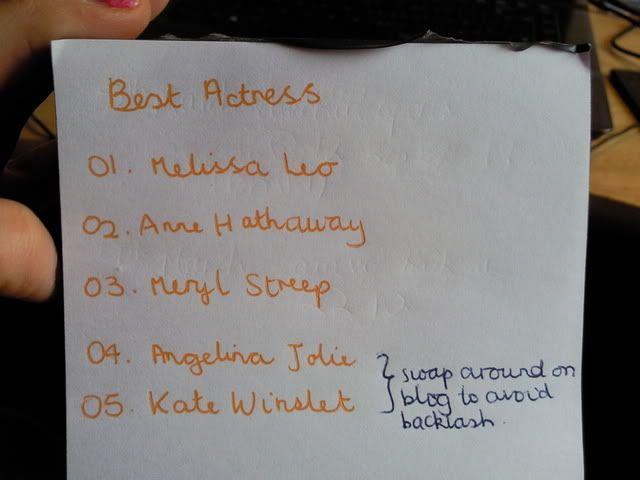 Best Actress
01. Melissa Leo
02. Anne Hathaway
03. Meryl Streep
04. Angelina Jolie
05. Kate Winslet
swap around on
blog to avoid
backlash.